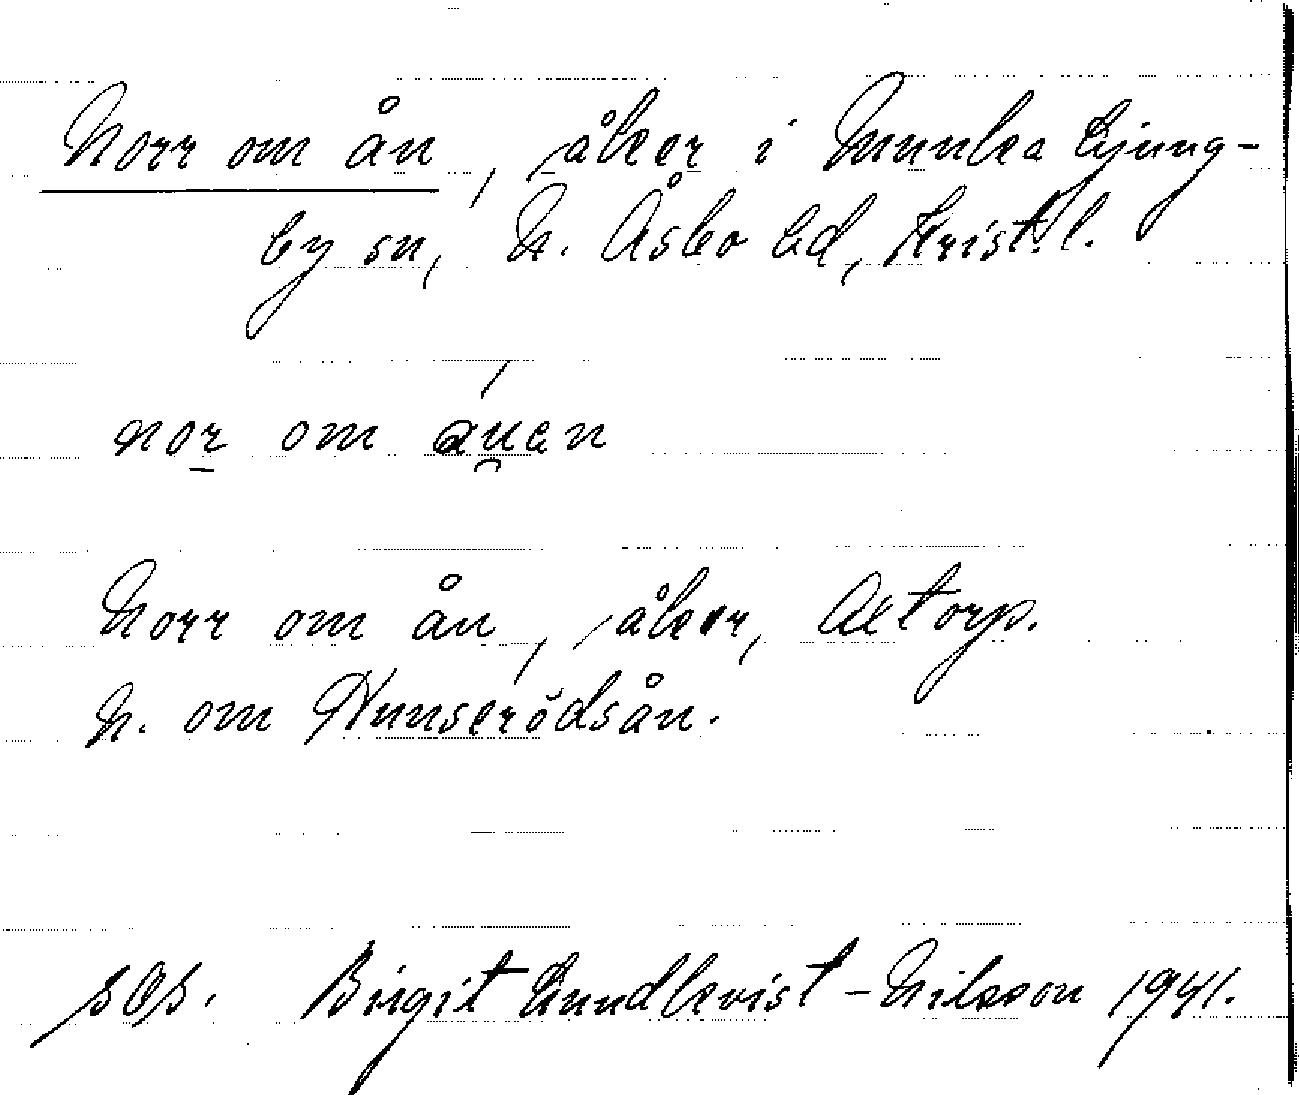 Norr om ån, åker i Munka Ljung-
by sn, N. Åsbo hd, Krist. l.
nor om auen
Norr om ån, åker, Axtorp.
N. om Hunserödsån.
Birgit Lundkvist - Nilsson 1941.